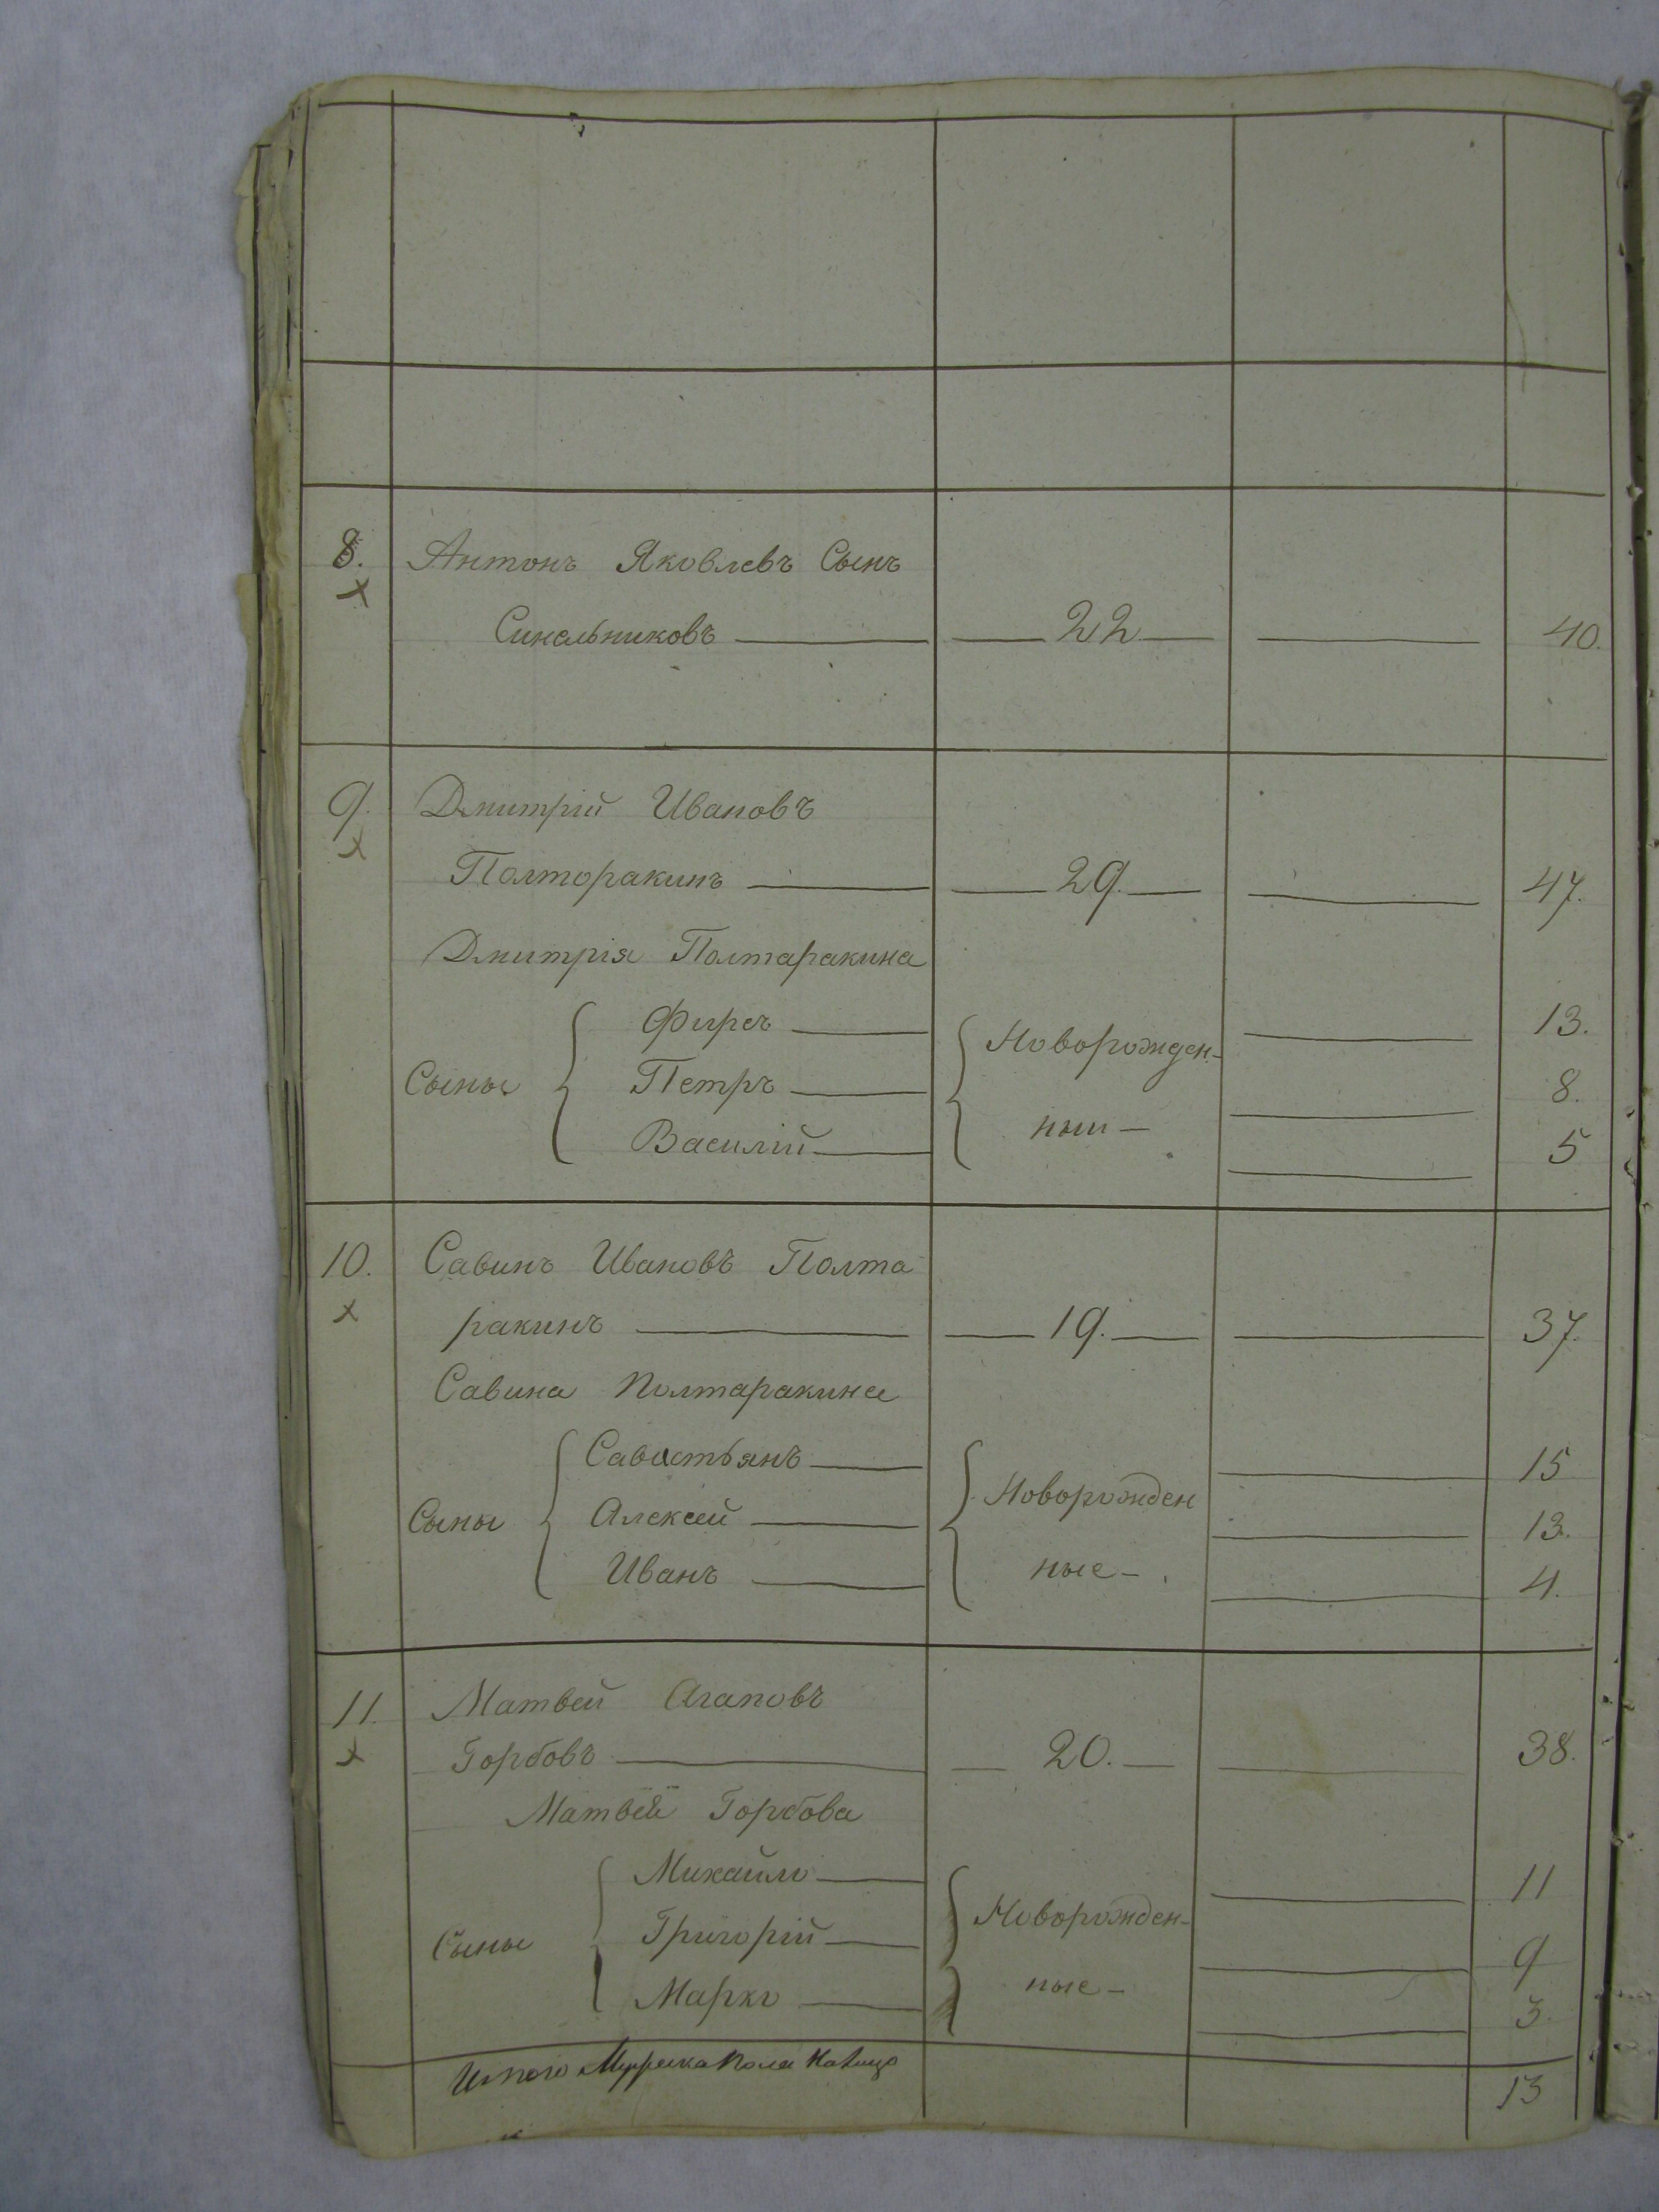 8. Антонъ Яковлевъ Сынъ
х
Синельниковъ — 22 — 40.
9. Дмитрій Ивановъ
х
Полторакинъ — 29. — 47.
Дмитрія Полтаракина
Фирсъ — 13.
Новорожден-
Сыны Петръ — 8.
ныи —
Василій — 5
10. Савинъ Ивановъ Полта
х
ракинъ — 19. — 37.
Савина Полтаракина
Савастьянъ — 15
Новорожден
Сыны Алексей — 13.
ные —
Иванъ — 4.
11. Матвей Агаповъ
х
Горбовъ — 20. — 38.
Матвея Горбова
Михайло — 11
Новорожден-
Сыны Григорій — 9
ные —
Марко — 3.
Итого Мужеска пола налицо 13